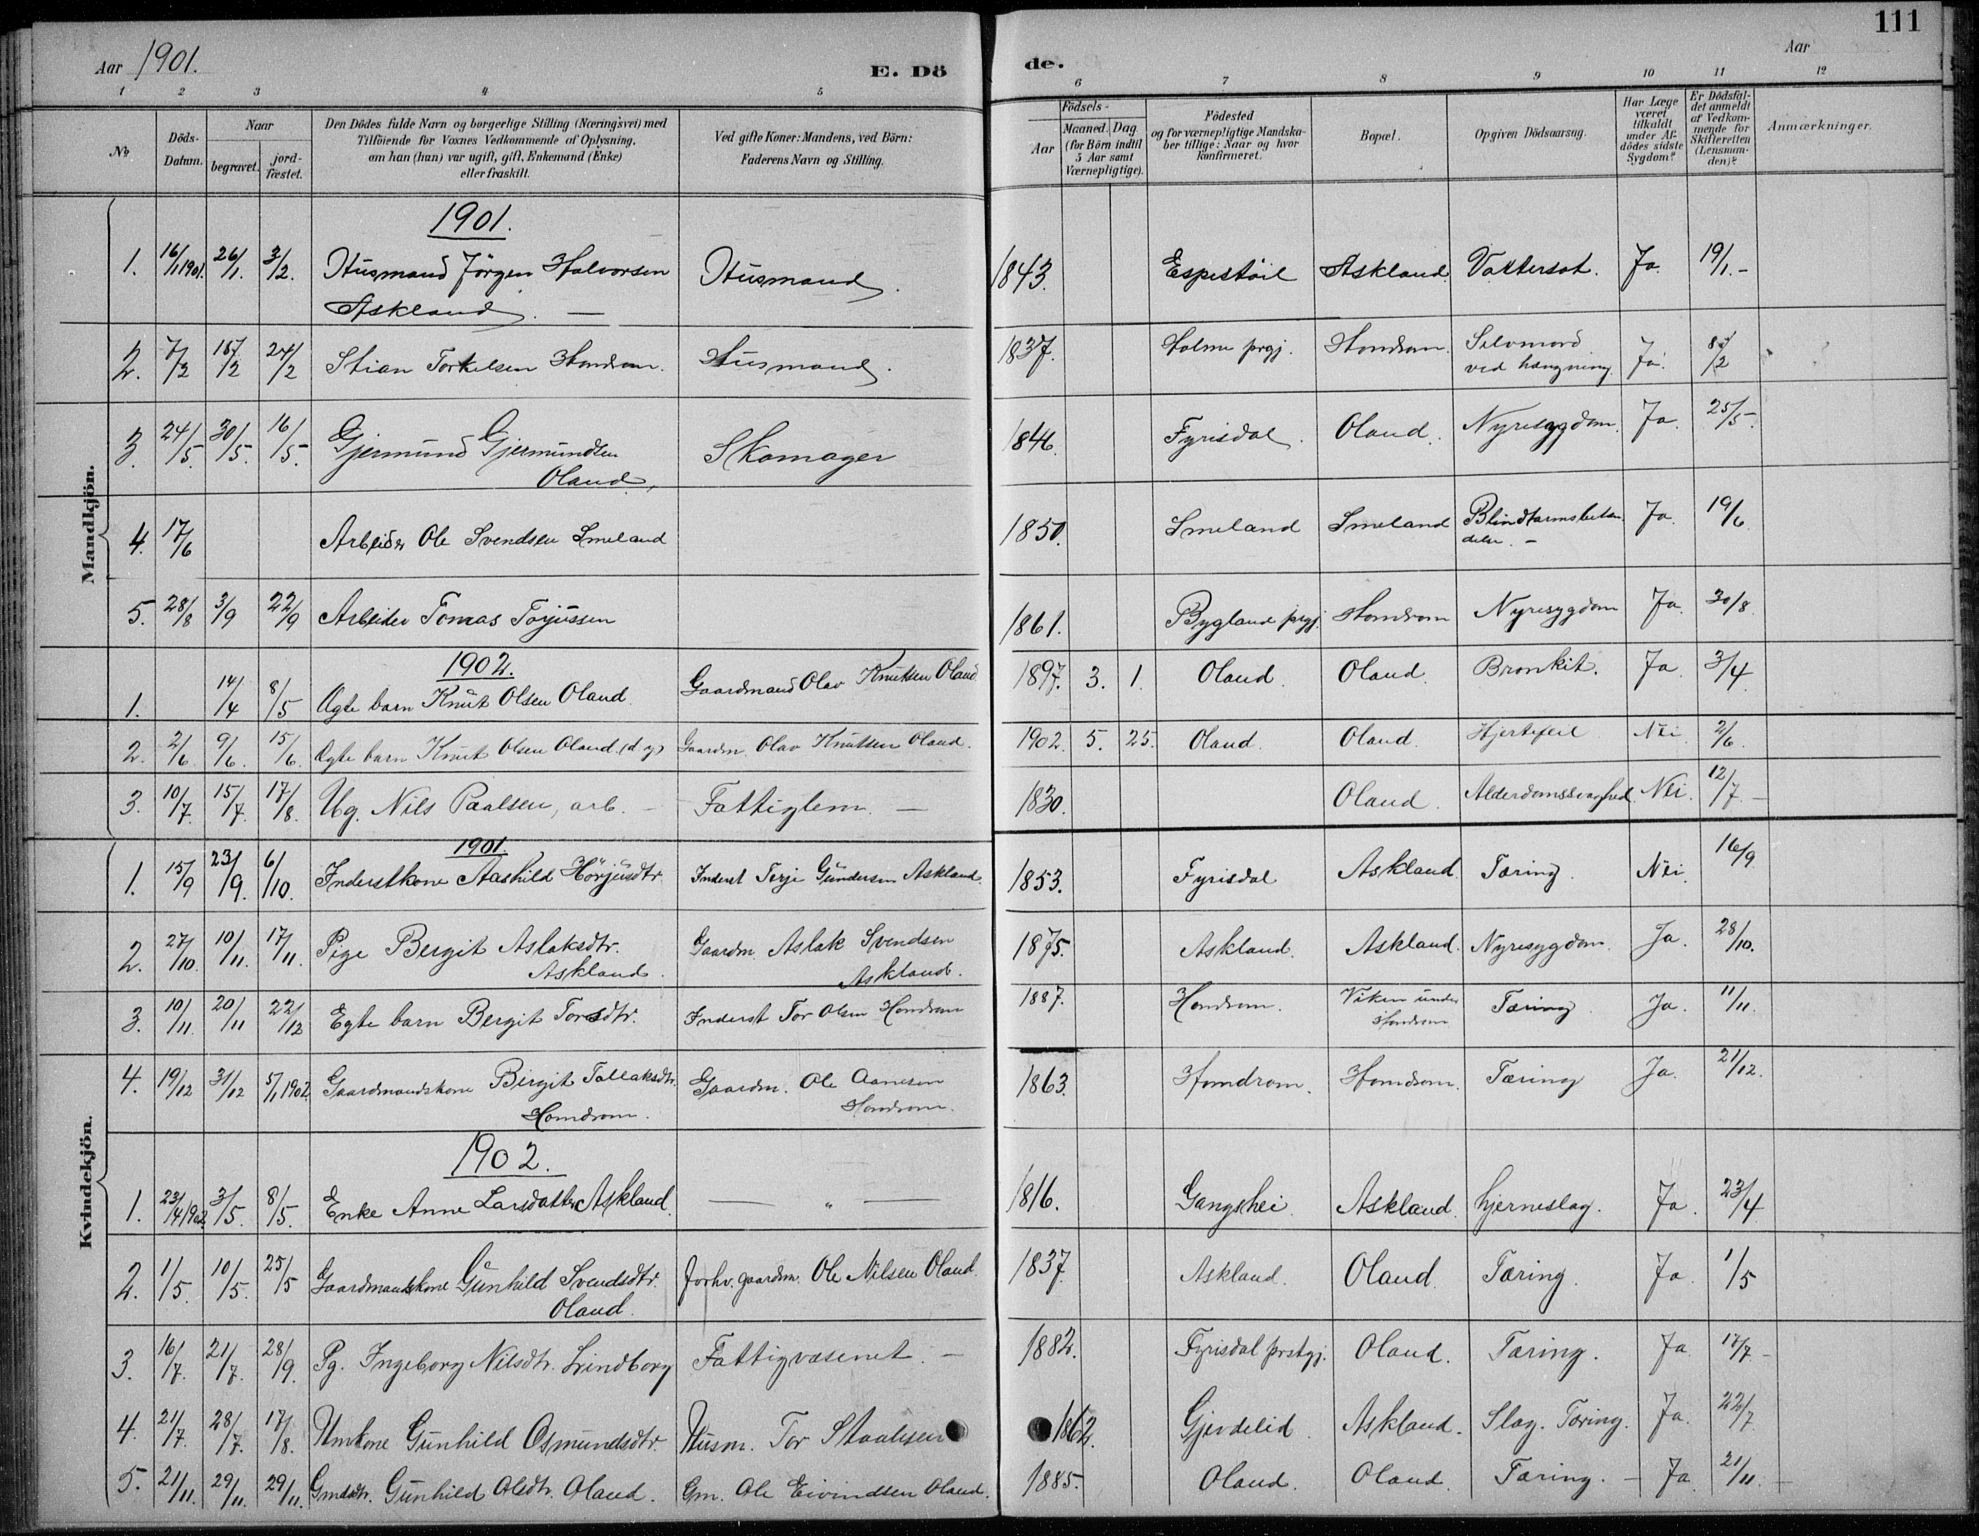 111
Aar 1901.
E. Dö
de.
Aar
1 2 3 4 5 6 7 8 9 10 11 12
№
Döds-Datum.
Naar
begravet. jord-fæstet.
Den Dödes fulde Navn og borgerlige Stilling (Næringsvei) med
Tilföiende for Voxnes Vedkommende af Oplysning,
om han (hun) var ugift, gift, Enkemand (Enke)
eller fraskilt.
Ved gifte Koner: Mandens, ved Börn:
Faderens Navn og Stilling.
Födsels-
Aar
Maaned. Dag
(for Börn indtil
5 Aar samt
Værnepligtige).
Födested
og for værnepligtige Mandska-
ber tillige: Naar og hvor
konfirmeret.
Bopæl.
Opgiven Dödsaarsag.
Har Læge
været
tilkaldt
under Af-
dödes sidste
Sygdom?
Er Dödsfal-
det anmeldt
af Vedkom-
mende for
Skifteretten
(Lensman-
den)?
Anmærkninger.
Mandkjön.
1901.
1. 16/1 1901. 26/1. 3/2. Husmand Jörgen Halvorsen Husmand. 1843. Espestöil Askland Vattersot. Ja. 19/1. -
Askland. -
2. 7/2 24/2 Stian Torkelsen Homdrom. Husmand. 1837. Holme prgj. Homdrom. Selvmord Ja.
ved hængning.
3. 24/5. 30/5. 16/5. Gjermund Gjermundsen Skomager 1846. Fyrisdal. Oland. Nyresygdom. Ja. 25/5.
Oland.
4. 17/6 Arbeider Ole Svendsen Smeland 1850. Smeland Smeland Ja. 19/6.
5. 28/8 3/9 22/9 Arbeider Tomas Torjussen 1861. Bygland prgj. Homdrom Nyresygdom Ja. 30/8.
1902.
1. 14/4 8/5 Ægte barn Knut Olsen Oland. Gaardmand Olav Knutsen Oland 1897. 3. 1. Oland. Oland. Bronkit. Ja. 3/4
2. 2/6 9/6. 15/6. Ægte barn Knut Olsen Oland (d. y) Gaardm. Olav Knutsen Oland. 1902. 5. 25. Oland. Oland. Hjertefeil Nei. 2/6.
3. 10/7. 15/7. 17/8. Ug. Nils Paalsen, arb. - Fattiglem. - 1830. Oland. Alderdomssvaghed Nei. 12/7. -
Kvindekjön.
1901.
1. 15/9 23/9. 6/10. Inderstkone Aashild Hörjusdtr. Inderst Terje Gundersen Askland. 1853. Fyrisdal Askland. Tæring. Nei. 16/9
2. 27/10. 10/11. 17/11. Pige Bergit Aslaksdtr. Gaardm Aslak Svendsen 1875. Askland. Askland. Nyresygdom. Ja. 28/10.
Askland. Askland.
3. 10/11. 20/11 22/12 Egte barn Bergit Torsdtr. Inderst Tor Olsen Homdrom 1887. Homdrom. Viken under Tæring. Ja. 11/11.
Homdrom
4. 19/12 31/12 5/1 1902. Gaardmandskone Birgit Tallaksdtr. Gaardm. Ole Aanesen 1863. Homdrom. Homdrom. Tæring Ja. 21/12.
Homdrom. Homdrom.
1902.
1. 23/4 1902 3/5. 8/5. Enke Anne Larsdatter Askland. — „ — 1816. Gangshei. Askland. hjerneslag. Ja. 23/4
2. 1/5. 10/5. 25/5 Gaardmandskone Gunhild Svendsdtr. forhv. gaardm. Ole Nilsen Oland. 1837 Askland. Oland. Tæring. Ja. 1/5
Oland.
3. 16/7. 21/7. 28/9. Pg. Ingeborg Nilsdtr. Lindborg Fattigvæsenet. - 1882. Fyrisdal prstgj. Oland. Tæring. Ja. 17/7 -
4. 21/7. 28/7. 17/8. Gunhild Osmundsdtr. Husm. Tor 1862. Askland. Slag. Tæring. Ja. 22/7
5. 21/11. 29/11. 29/11. Gmdsdtr. Gunhild Olsdtr. Oland. Gm. Ole Eivindsen Oland. 1885. Oland. Oland. Tæring. - Ja. 21/11. -